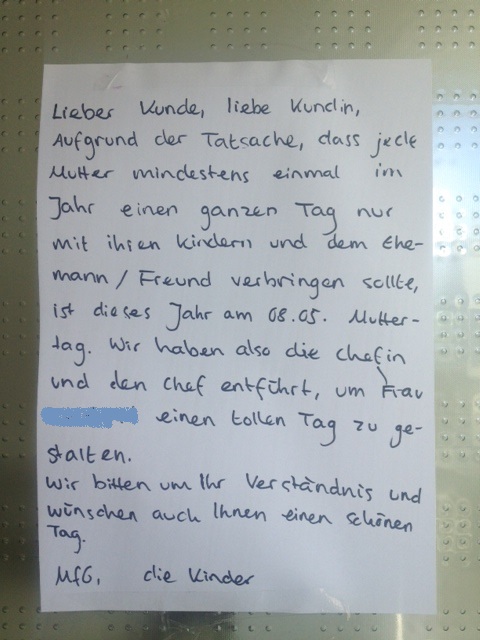 Lieber Kunde, liebe Kundin,
Aufgrund der Tatsache, dass jede
Mutter mindestens einmal im
Jahr einen ganzen Tag nur
mit ihren Kindern und dem Ehe-
mann / Freund verbringen sollte,
ist dieses Jahr am 08.05. Mutter-
tag. Wir haben also die Chefin
und den Chef entführt, um Frau
einen tollen Tag zu ge-
stalten.
Wir bitten um Ihr Verständnis und
wünschen auch Ihnen einen schönen
Tag.
MfG, die Kinder